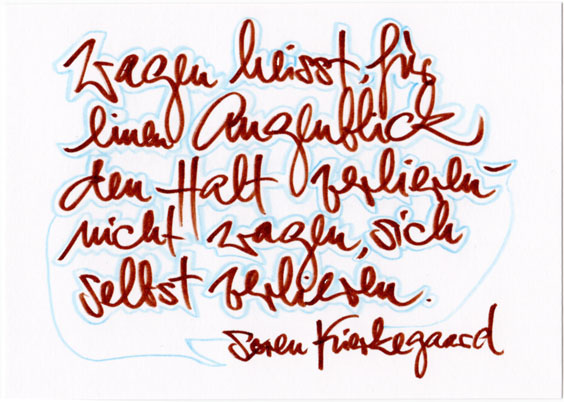 wagen heisst, für
einen Augenblick
den Halt verlieren –
nicht wagen, sich
selbst verlieren.
Sören Kierkegaard